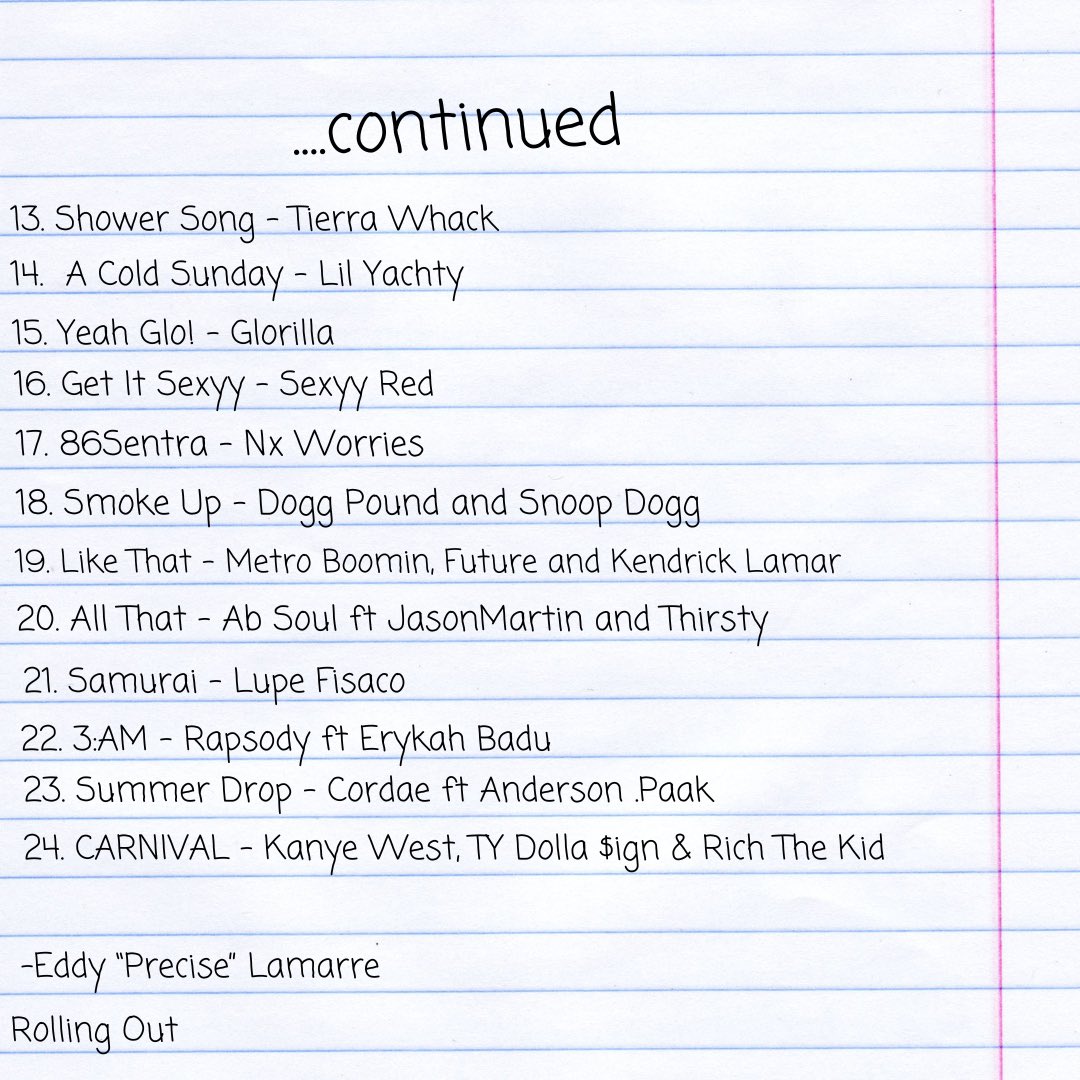 ....continued
13. Shower Song - Tierra Whack
14. A Cold Sunday - Lil Yachty
15. Yeah Glo! - Glorilla
16. Get It Sexyy - Sexyy Red
17. 86Sentra - Nx Worries
18. Smoke Up - Dogg Pound and Snoop Dogg
19. Like That - Metro Boomin, Future and Kendrick Lamar
20. All That - Ab Soul ft JasonMartin and Thirsty
21. Samurai - Lupe Fisaco
22. 3:AM - Rapsody ft Erykah Badu
23. Summer Drop - Cordae ft Anderson .Paak
24. CARNIVAL - Kanye West, TY Dolla $ign & Rich The Kid
-Eddy "Precise" Lamarre
Rolling Out